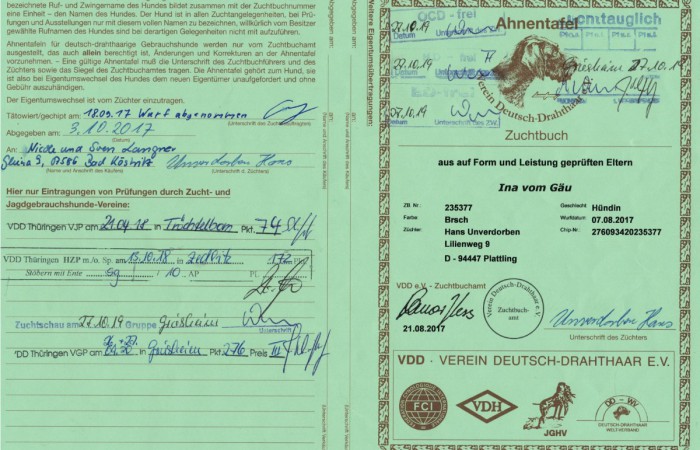 bezeichnete Ruf- und Zwingername des Hundes bildet zusammen mit der Zuchtbuchnummer
eine Einheit – den Namen des Hundes. Der Hund ist in allen Zuchtangelegenheiten, bei Prü-
fungen und Ausstellungen nur mit diesem vollen Namen zu bezeichnen, willkürlich vom Besitzer
gewählte Rufnamen des Hundes sind bei derartigen Gelegenheiten nicht mit aufzuführen.
Ahnentafeln für deutsch-drahthaarige Gebrauchshunde werden nur vom Zuchtbuchamt
ausgestellt, das auch allein berechtigt ist, Änderungen und Korrekturen an der Ahnentafel
vorzunehmen. – Eine gültige Ahnentafel muß die Unterschrift des Zuchtbuchführers und des
Züchters sowie das Siegel des Zuchtbuchamtes tragen. Die Ahnentafel gehört zum Hund, sie
ist also bei Eigentumswechsel des Hundes dem neuen Eigentümer unaufgefordert und ohne
Gebühr auszuhändigen.
Der Eigentumswechsel ist vom Züchter einzutragen.
Tätowiert/gechipt am: 18.09.17 Wurf abgenommen
(Unterschrift des Zuchtwartes)
Abgegeben am: 3.10.2017
An: Nicole und Sven Langner
07586 Bad Köstritz Unverdorben Hans
(Name und Anschrift des Käufers) (Unterschrift d. Züchters)
Hier nur Eintragungen von Prüfungen durch Zucht- und
Jagdgebrauchshunde-Vereine:
VDD Thüringen VJP am 21.04.18 in Tröchtelborn Pkt. 74
VDD Thüringen HZP m./o. Sp. am 13.10.18 in Zedlitz 172 Pkt.
Stöbern mit Ente sg / 10 AP PL
Zuchtschau am 27.10.19 Gruppe Griesheim
Unterschrift
VDD Thüringen VGP am in Griesheim Pkt. 276 Preis III
Weitere Eigentumsübertragungen:
Abgegeben am:
Abgegeben am:
An:
An:
27.10.19
OCD - frei
Datum
Ahnentafel
Zuchttauglich
Griesheim 27.10.19
27.10.19
Datum
27.10.19
Datum
Unterschrift des ZW.
Verein Deutsch-Drahthaar
Zuchtbuch
aus auf Form und Leistung geprüften Eltern
Ina vom Gäu
ZB. Nr.: 235377 Geschlecht Hündin
Farbe Brsch Wurfdatum 07.08.2017
Züchter: Hans Unverdorben Chip Nr.: 276093420235377
Lilienweg 9
D - 94447 Plattling
VDD e.V. - Zuchtbuchamt
Verein Deutsch-Drahthaar e.V.
Zuchtbuch-
amt
Unverdorben Hans
21.08.2017
Unterschrift des Züchters
VDD · VEREIN DEUTSCH-DRAHTHAAR E.V.
FCI
VDH
JGHV
DD - WV
DEUTSCH-DRAHTHAAR
WELTVERBAND